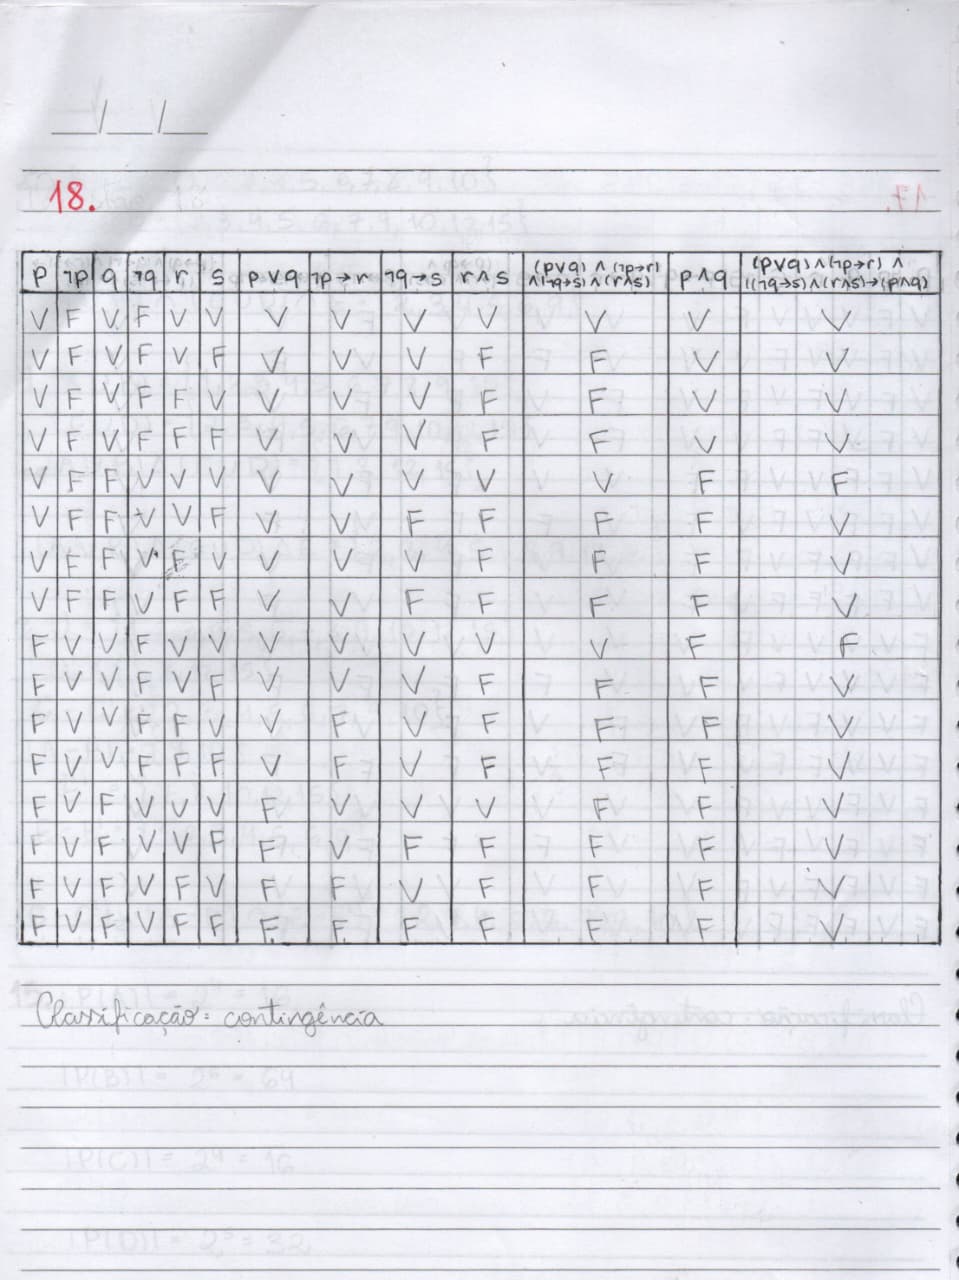 __/__/__
18.
p ¬p q ¬q r s p∨q ¬p→r ¬q→s r∧s (p∨q)∧(¬p→r)∧(¬q→s)∧(r∧s) p∧q (p∨q)∧(¬p→r)∧((¬q→s)∧(r∧s)→(p∧q)
V F V F V V V V V V V V V
V F V F V F V V V F F V V
V F V F F V V V V F F V V
V F V F F F V V V F F V V
V F F V V V V V V V V F F
V F F V V F V V F F F F V
V F F V F V V V V F F F V
V F F V F F V V F F F F V
F V V F V V V V V V V F F
F V V F V F V V V F F F V
F V V F F V V F V F F F V
F V V F F F V F V F F F V
F V F V V V F V V V F F V
F V F V V F F V F F F F V
F V F V F V F F V F F F V
F V F V F F F F F F F F V
Classificação: contingência